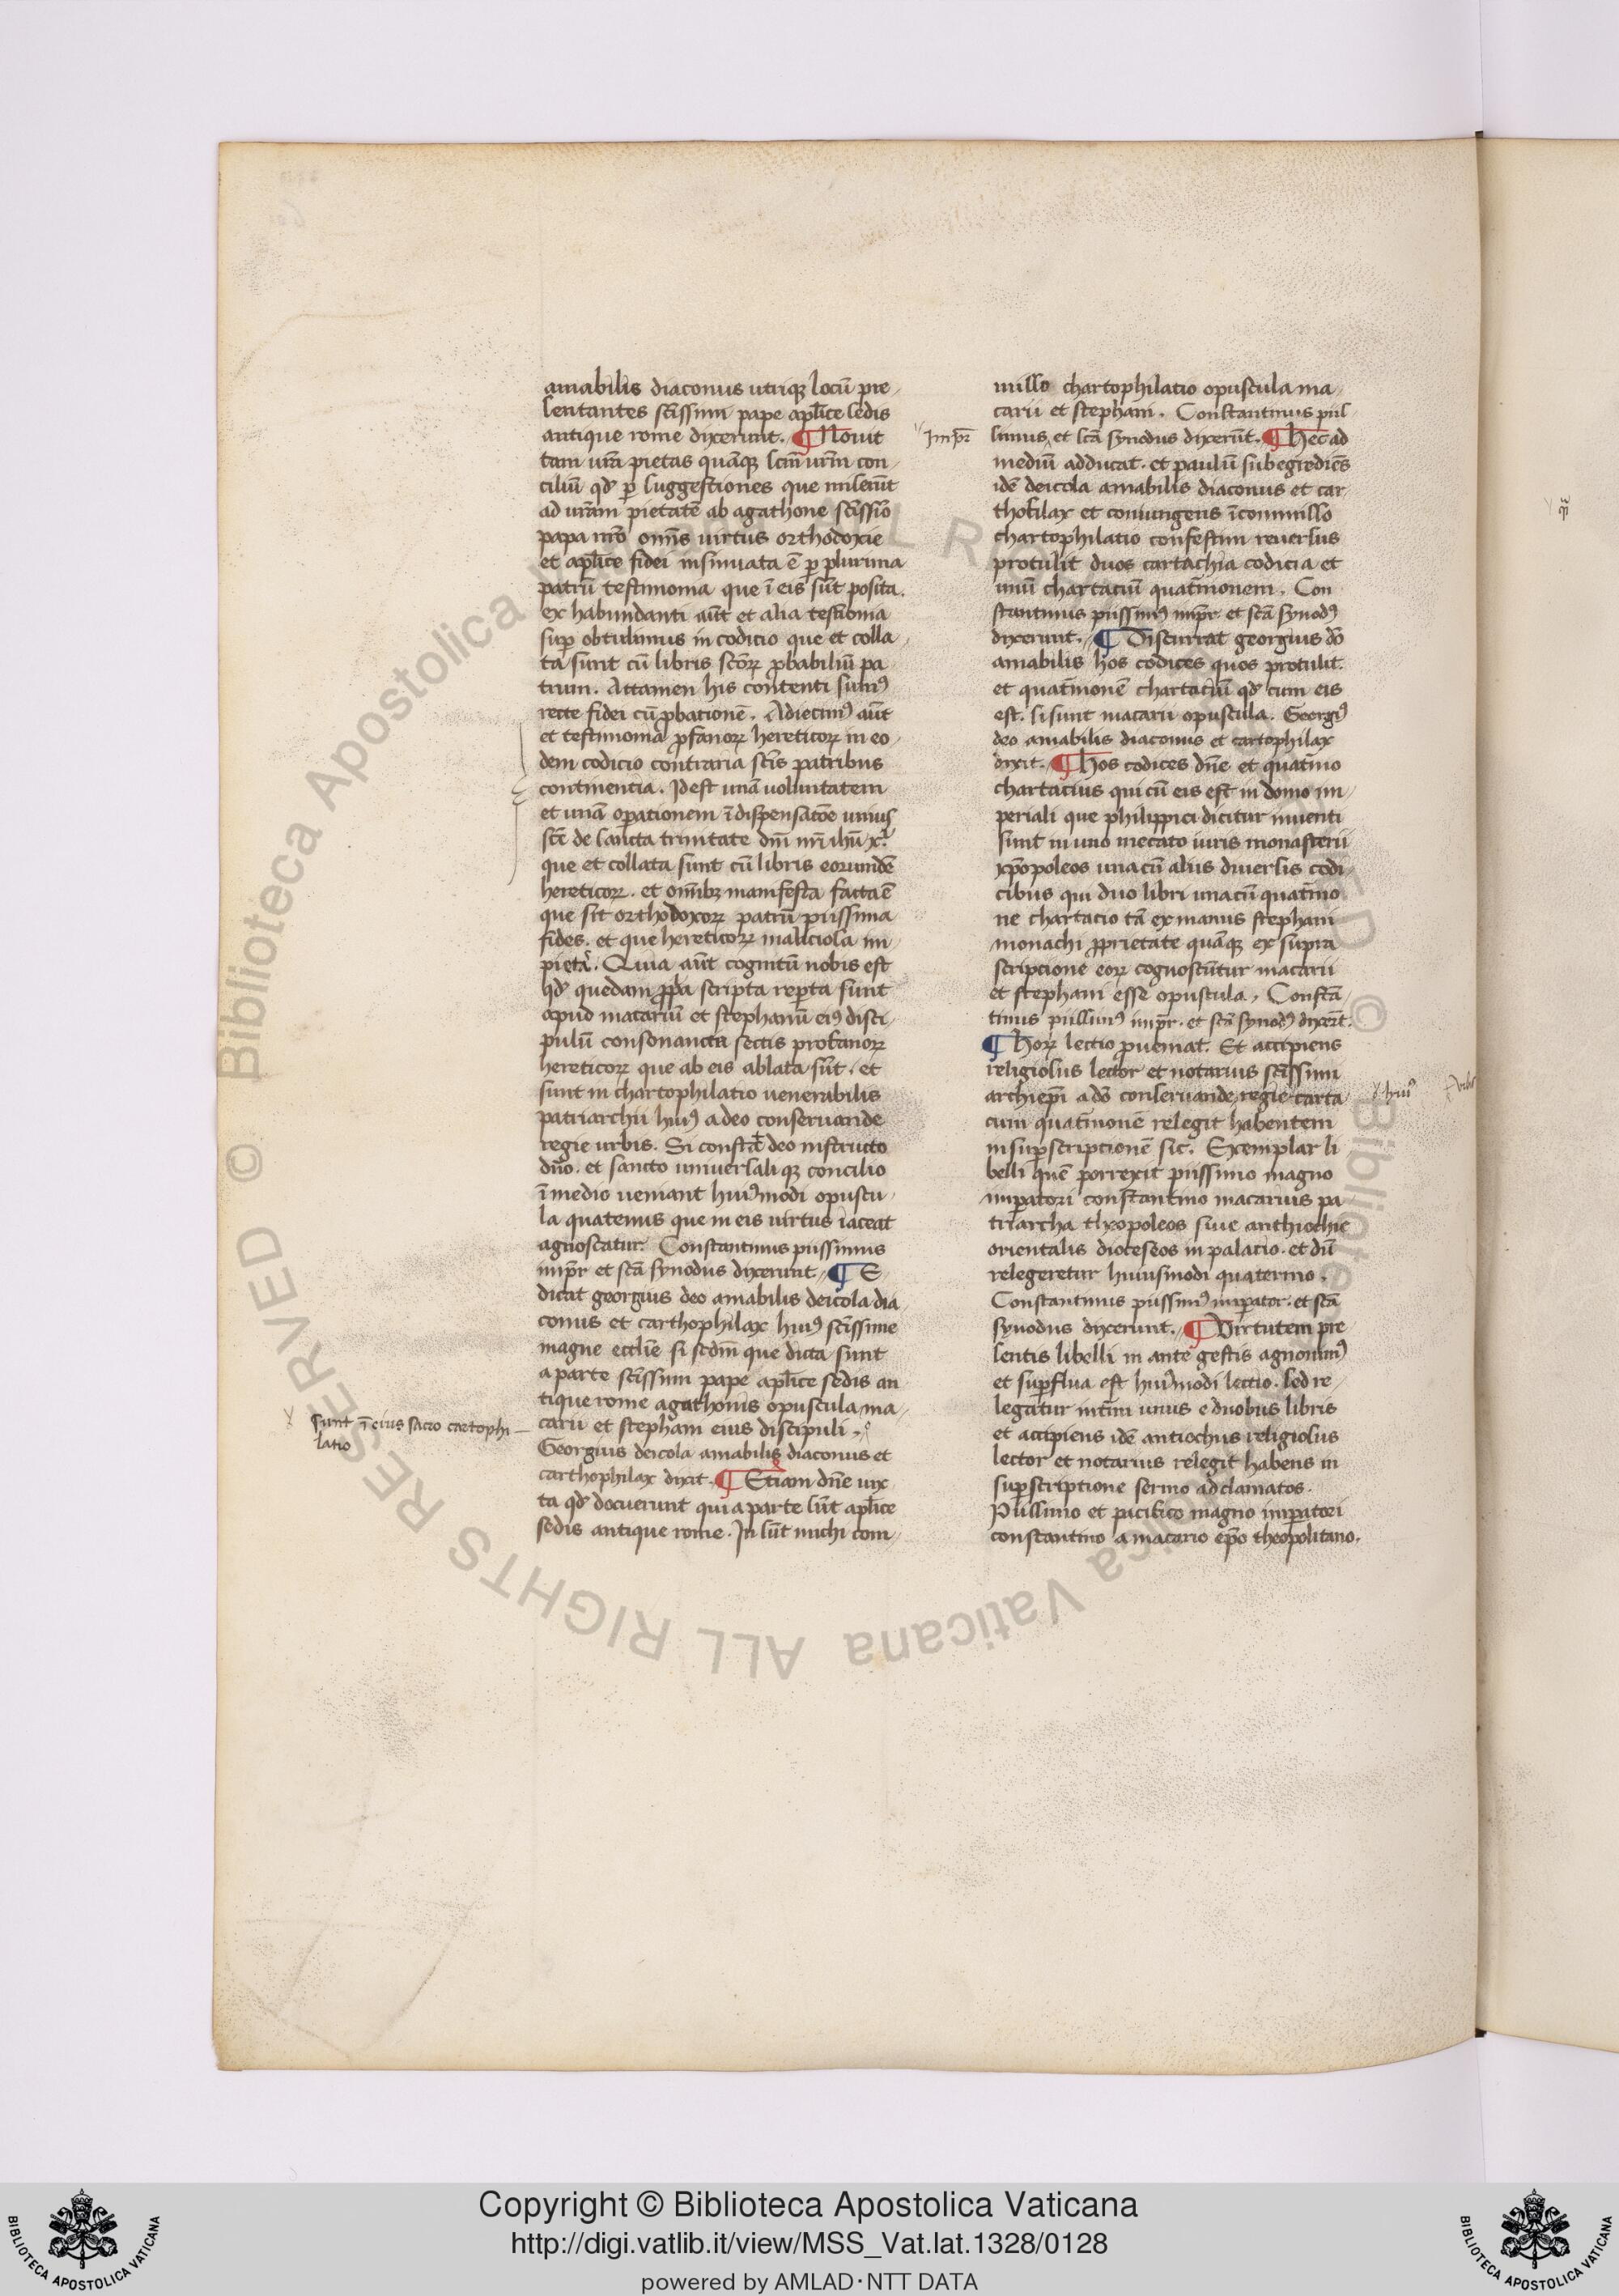 amabilis diaconus utriqꝫ locū pre
sentantes sc̄issimi pape apl̄ice sedis
antique rome dixerunt. ¶ Nouit
tam ur̄a pietas quāqꝫ sc̄m̄ ur̄m con
ciliū qd̓ ꝑ suggestiones que miserūt
ad ur̄am pietatē ab agathone sc̄issīo
papa nr̄o om̄s uirtus orthodoxie
et apl̄ice fidei insinuata ē ꝑ plurima
patrū testimonia que ī eis sūt posita.
ex habundanti aūt et alia testīonia
suꝑ obtulimus in codicio que et colla
ta sunt cū libris sc̄oꝝ ꝓbabiliū pa
trum. Attamen his contenti sumꝰ
recte fidei cū ꝓbationē. Adiecimꝰ aūt
et testimonia ꝓfanoꝝ hereticoꝝ in eo
dem codicio contraria sc̄is patribus
continentia. Id est unā uoluntatem
et unā oꝑationem ī dispensatōe unius
sc̄e de sancta trinitate dn̄i nr̄i ihū xp̄i
que et collata sunt cū libris eorumdē
hereticoꝝ. et om̄ibꝫ manifesta facta ē
que sit orthodoxoꝝ patrū piissima
fides. et que hereticoꝝ maliciosa im
pietā. Quia aūt cognitū nobis est
qd̓ quedam ꝓp̄a scripta reꝑta sunt
apud macariū et stephanū eiꝰ disci
pulū consonancia sectis profanoꝝ
hereticoꝝ que ab eis ablata sūt. et
sunt in chartophilatio uenerabilis
patriarchii huiꝰ a deo conseruande
regie urbis. Si confitet̄ deo instructo
dn̄o. et sancto uniuersaliqꝫ concilio
ī medio ueniant huiꝰmodi opuscu
la quatenus que in eis uirtus iaceat
agnoscatur. Constantinus piissimus
imp̄r et sc̄a synodus dixerunt ¶ E
dicat georgius deo amabilis deicola dia
conus et carthophilax huiꝰ sc̄issime
magne eccl̄ie si sēdm̄ que dicta sunt
a parte sc̄issimi pape apl̄ice sedis an
tique rome agathonis opuscula ma
carii et stephani eius discipuli.
Georgius deicola amabilis diaconus et
carthophilax dixit. ¶ Etiam dn̄e iux
ta qd̓ docuerunt qui a parte sūt apl̄ice
sedis antique rome. In sūt michi com
Sunt ī eius sacro cartophi
latio
Imp̄r
misso chartophilatio opuscula ma
carii et stephani. Constantinus piis
simus et sc̄a synodus dixerūt. ¶ Hec ad
mediū adducat. et paulū subegrediēs
idē deicola amabilis diaconus et car
thofilax et coniungens ī commisso
chartophilatio confestim reuersus
protulit duos cartachia codicia et
unū chartaciū quat̄nionem. Con
stantinus piissimꝰ imp̄r et sc̄a synodꝰ
dixerunt. ¶ Discurrat georgius dō
amabilis hos codices quos protulit
et quat̄nionē chartaciū qd̓ cum eis
est. si sunt macarii opuscula. Georgiꝰ
deo amabilis diaconus et cartophilax
dixit. ¶ Hos codices dn̄e et quat̄nio
chartacius qui cū eis est in domo im
periali que philippici dicitur inuenti
sunt in uno mecato iuris monasterii
xp̄opoleos una cū aliis diuersis codi
cibus qui duo libri una cū quat̄nio
ne chartacio tā ex manus stephani
monachi ꝓprietate quāqꝫ ex supra
scripcione eoꝝ cognoscūtur macarii
et stephani esse opuscula. Constā
tinus piissimꝰ imp̄r. et sc̄a synodꝰ dixer̄t.
¶ Hoꝝ lectio ꝓueniat. Et accipiens
religiosus lector et notarius sc̄issimi
archiep̄i a dō conseruande regie carta
cum quat̄nionē relegit habentem
in suꝑscripcionē sic. Exemplar li
belli quē porrexit piissimo magno
imꝑatori constantino macarius pa
triarcha theopoleos siue anthiochie
orientalis dioceseos in palacio. et dū
relegeretur huiusmodi quaternio.
Constantinus piissimꝰ imꝑator. et sc̄a
synodus dixerunt. ¶ Virtutem pre
sentis libelli in ante gestis agnouimꝰ
et suꝑflua est huiꝰmodi lectio. sed re
legatur int̄im unus e duobus libris
et accipiens idē antiochus religiosus
lector et notarius relegit habens in
suꝑscriptione sermo adclamatos.
Piissimo et pacifico magno imꝑatori
constantino a macario ep̄o theopolitano.
huiꝰ
Copyright © Biblioteca Apostolica Vaticana
http://digi.vatlib.it/view/MSS_Vat.lat.1328/0128
powered by AMLAD·NTT DATA
BIBLIOTECA APOSTOLICA VATICANA
BIBLIOTECA APOSTOLICA VATICANA